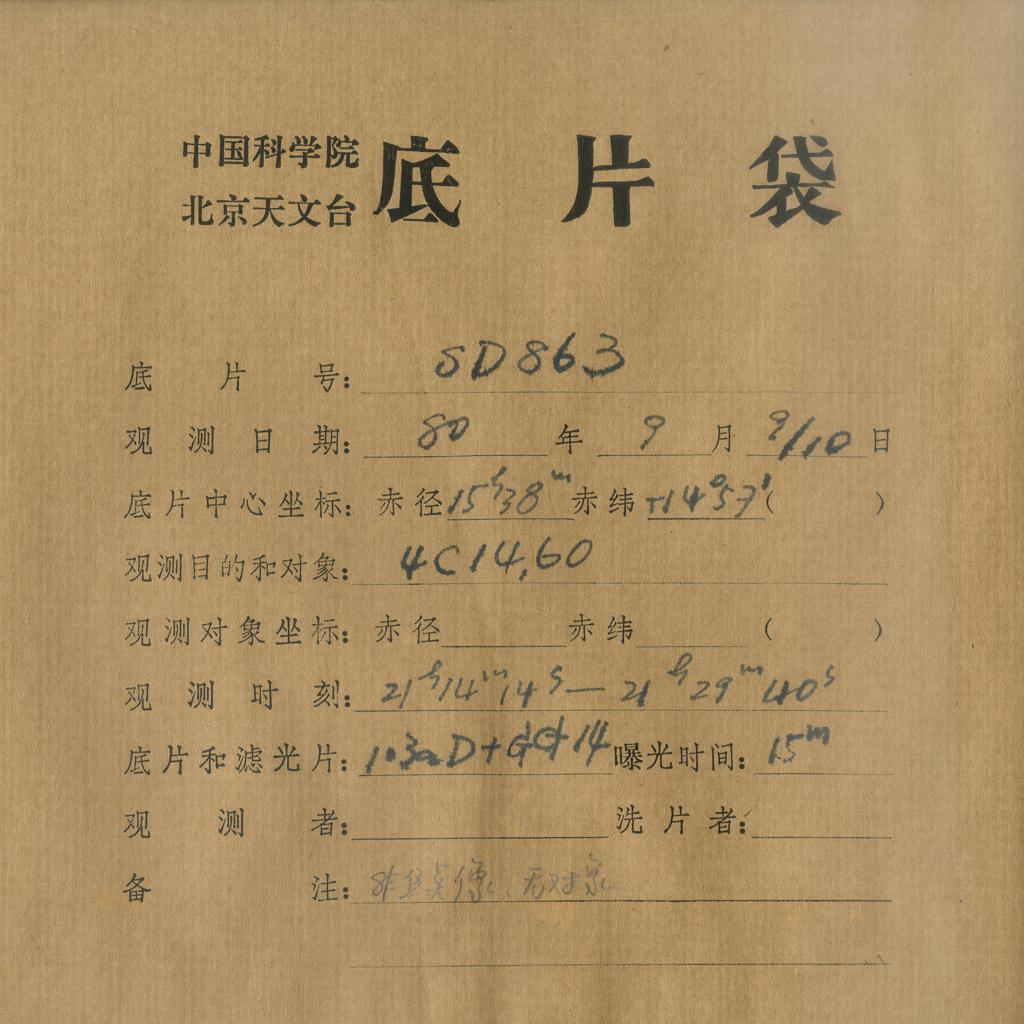 中国科学院
北京天文台
底片袋
底片号: SD863
观测日期: 80 年 9 月 9/10 日
底片中心坐标: 赤径 15h38m 赤纬 +14°57′ ( )
观测目的和对象: 4C14,60
观测对象坐标: 赤径 赤纬 ( )
观测时刻: 21h14m14s — 21h29m40s
底片和滤光片: 103aD+GG14 曝光时间: 15m
观测者: 洗片者:
备注: 无对象